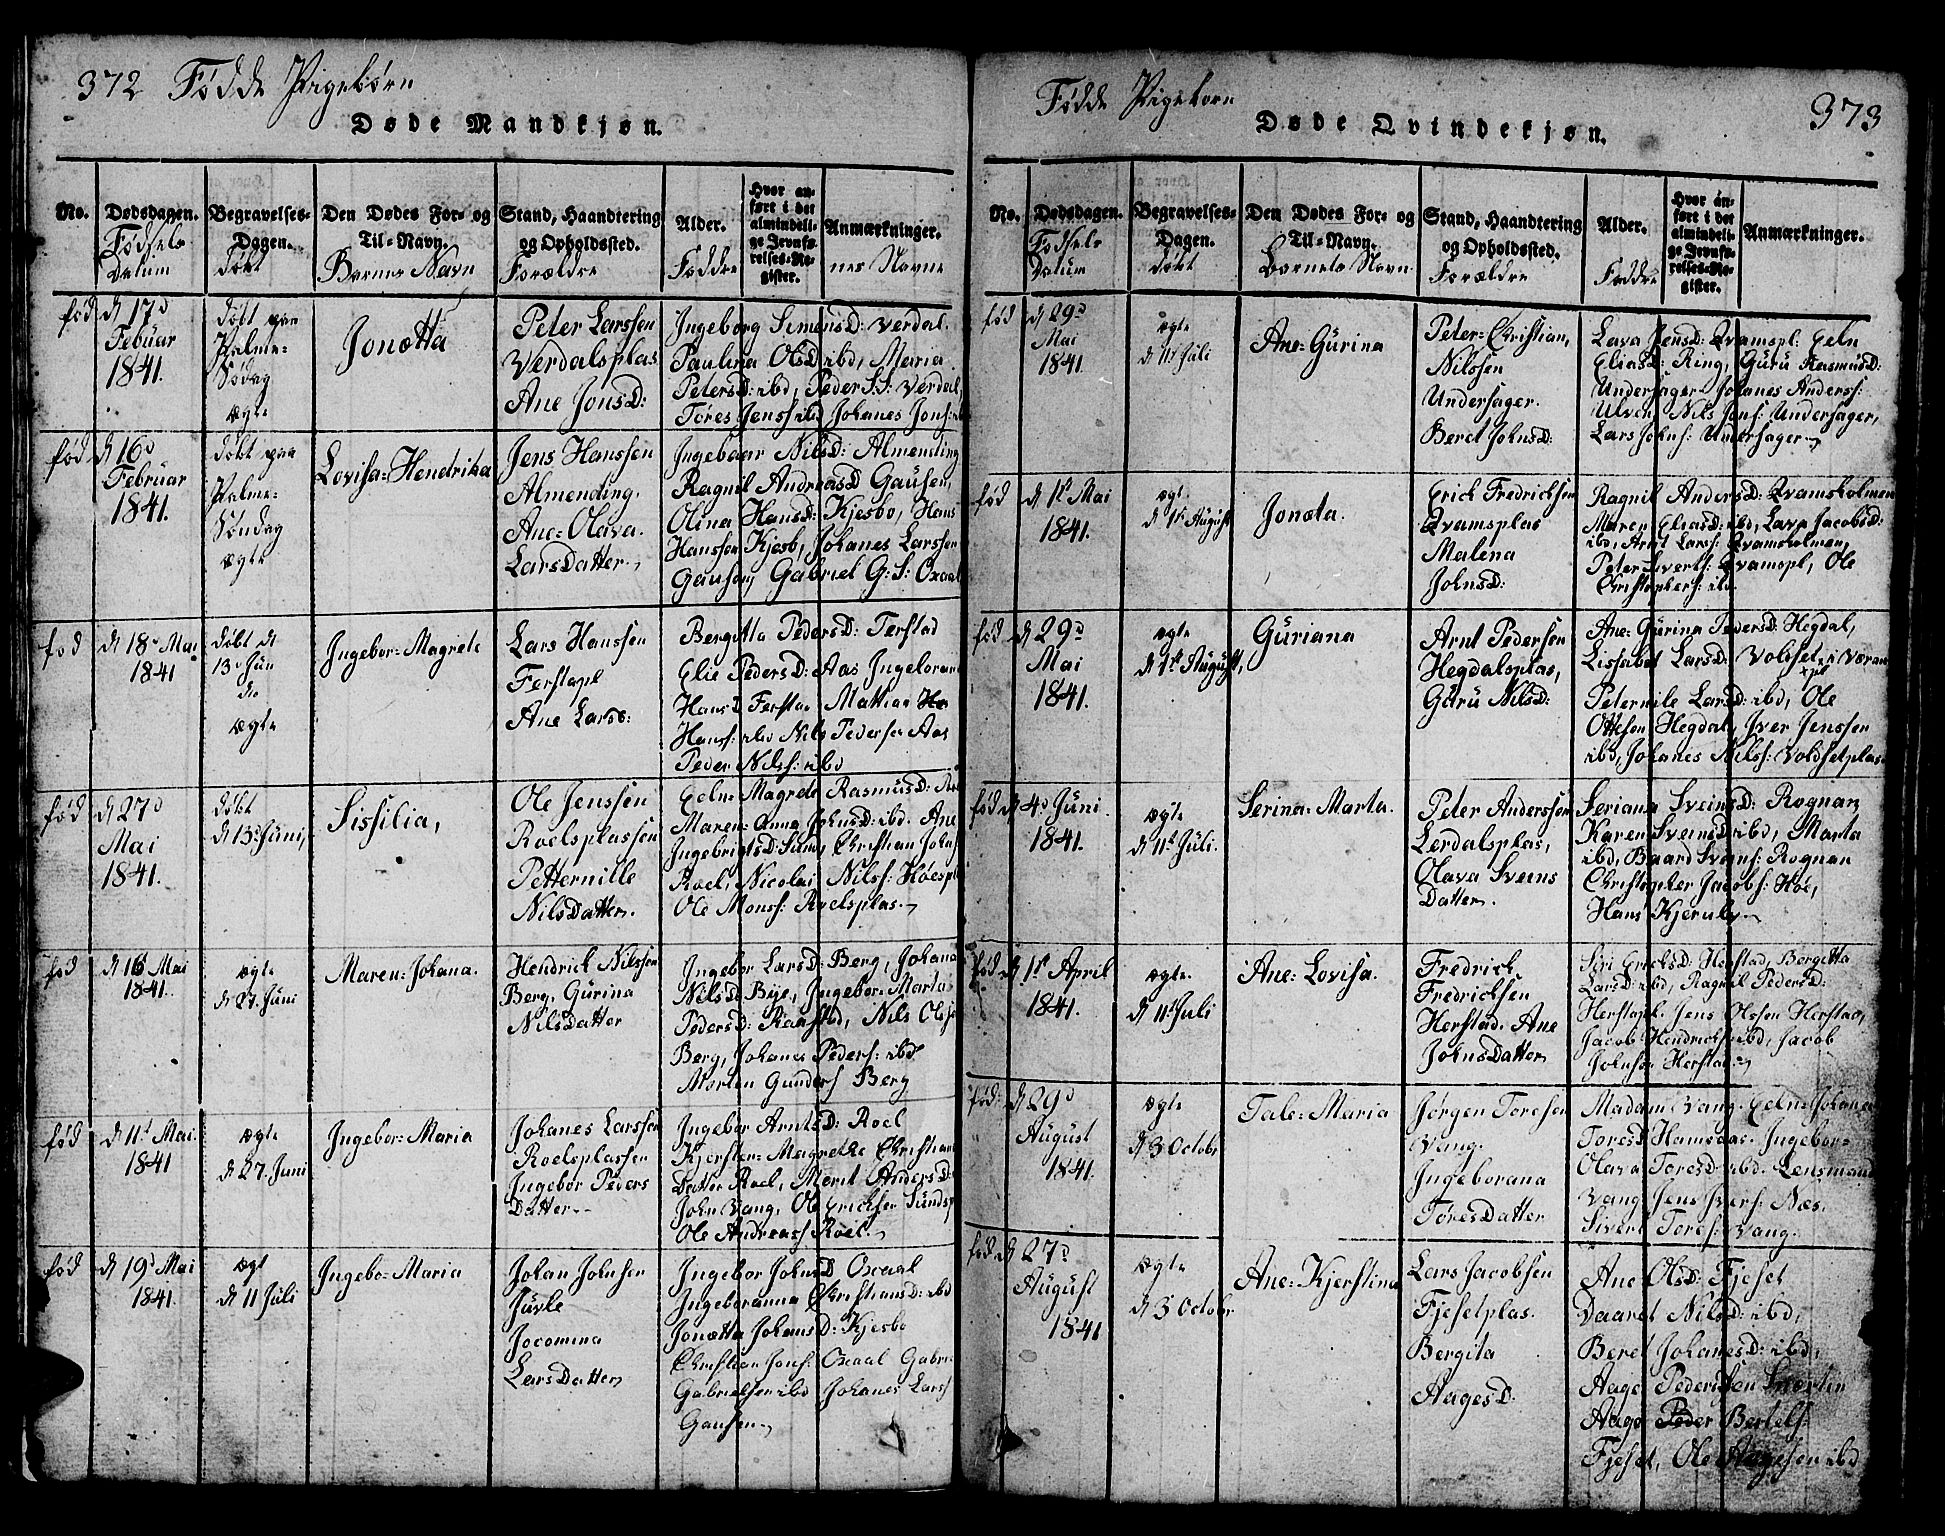 372 Fødde Pigebørn
Døde Mandkjøn.
No.
Dødsdagen.
Fødsels
Datum
Begravelses-
Dagen.
døbt
Den Dødes For- og
Til-Navn.
Barnes Navn
Stand, Haandtering
og Opholdssted.
Forældre
Alder.
Faddre
Hvor an-
ført i det
almindeli-
ge Jevnfø-
relses-Re-
gister.
Anmærkninger.
nes Navne
fød d 17d
Febuar
1841.
døbt paa
Palme-
Sødag
ægte
Jonetta
Peter Larssen
Verdalsplas
Ane JonsD:
Ingeborg SimensD: Verdal.
Paulina OlsD ibd, Maria
PetersD: ibd, Peder S.S: Verdal,
Tøres Jenss ibd Johanes Jons: ibd
fød d 16d
Februar
1841.
døbt paa
Palme-
Søndag
ægte
Lovisa-Hendrika
Jens Hanssen
Almending.
Ane-Olava.
LarsDatter,
Ingebaar NilsD: Almending
Ragnil AndreasD Gausen,
Olina HansD: Kjesbo, Hans
Hanssen Kjesb, Johanes Larssen
Gausen, Gabriel G:S: Oxaal
fød
d 18 Mai
1841
døbt d
13 Jun
ægte
Ingebor-Magrete
Lars Hanssen
Ferstapl
Ane Larss:
Bergitta PedersD: Ferstad
Elie PedersD: Aas Ingeborana
HansD Ferstad Mattias
Hanss: ibd Nils Pedersen Aas
Peder Nilss: ibd
fød
d 27d
Mai
1841.
døbt
d 13 Juni,
Sissilia,
Ole Jenssen
Roelsplassen
Petternille
NilsDatter.
Eeln-Magrete RasmusD:
Maren-Anna JohnsD: ibd. Ane
IngebrigtsD: Sund, Christian Johns
Roel, Nicolai Nilss: Høespl
Ole Monss: Roelsplas.
fød
d 16 Mai
1841.
ægte
d 27. Juni
Maren-Johana.
Hendrick Nilssen
Berg, Gurina
NilsDatter
Ingebor LarsD: Berg, Johana
NilsD Bye, Ingebor-Marta
PedersD: Raastad, Nils Olss
Berg, Johanes Peders: ibd
Morten Gunders Berg
fød
d 11t Mai.
1841
ægte
d 27. Juni
Ingebor-Maria
Johanes Larssen
Roelsplassen
Ingebor Peders
Datter
Ingebor ArntsD: Roel
Kjersten-Magrethe Christian
Datter Roel, Marit AndersD:
John Vang, Ole Ericksen Sundspl
Ole Andreass Roel.
fød
d 19d Mai
1841.
ægt
d 11 Juli
Ingebo-Maria
Johan Johnsen
Juvle
Jocomina
LarsDatter
Ingebor JohnsD Oxaal
Ingeboranna ChristiansD: ibd
Jonetta JohansD: Kjesbo
Christian Jons: Oxaal Gabri-
Gabrielsen ibd Johanes Larss
Gausen.
Fødde Pigebørn
373
Døde Qvindekjøn.
No.
Dødsdagen.
Fødsels
Datum
Begravelses-
Dagen.
døbt
Den Dødes For- og
Til-Navn.
Barnets Navn
Stand, Haandtering
og Opholdssted.
Forældre
Alder.
Faddre
Hvor an-
ført i det
almindeli-
ge Jevnfø-
relses-Re-
gister.
Anmærkninger.
fød
d 29d
Mai
1841.
ægte
d 11t Juli
Ane-Gurina
Peter-Christian,
Nilssen
Undersager.
Beret JohnsD:
Lava JensD: Qvamspl: Eeln
EliasD: Ring, Guru RasmusD:
Undersager Johanes Anderss:
Ulven Nils Jons: Undersager,
Lars Johns: Undersager
fød
d 1t Mai
1841.
ægte
d 1t August
Joneta.
Erick Fredricksen
Qvamsplas
Malena
JohnsD:
Ragnil AndersD: Qvamsholmen
Maren EliasD: ibd, Lava JacobsD:
ibd, Arnt Larss: Qvamsholmen,
Peter Siverts: Qvamspl, Ole
Christophers: ibd.
fød
d 29d
Mai
1841.
ægte
d 1t August,
Guriana
Arnt Pedersen
Hegdalsplas,
Guru NilsD:
Ane-Gurina PedersD: Hegdal,
Lissabet LarsD: Voldset i Væran
Peternile LarsD: ibd, Ole
Ottesen Hegdal, Iver Jenssen
ibd, Johanes Nilss: Voldsetplas.
fød
d 4d Juni
1841.
ægte
d 11t Juli.
Serina-Marta.
Peter Anderssen
Lerdalsplas,
Olava Sveins
Datter.
Seriana SveinsD: Rognan
Karen SveinsD: ibd, Marta
ibd, Baard Sveins: Rognan
Christopher Jacobs: Høe,
Hans Kjerulv
fød
d 1t April
1841.
ægte.
d 11t Juli
Ane-Lovisa.
Fredrick
Fredricksen
Herstad. Ane
JohnsDatter
Siri EricksD: Herstad, Bergitta
LarsD: ibd, Ragnil PedersD:
Herstapl. Jens Olssen Herstad,
Jacob Hendricks: ibd, Jacob
Johnsen Herstad.
fød
d 29d
August
1841.
ægte
d 3 Octobr
Tale-Maria
Jørgen Toresen
Vang.
Ingeborana
TøresDatter
Madam Vang. Eeln-Johana
ToresD Hamsaas. Ingebor-
Olava ToresD ibd. Lensmand
Vang Jens Ivers: Næs.
Sivert Tores: Vang.
fød
d 27d
August
1841
ægte
d 3 Octobr
Ane-Kjerstina
Lars Jacobsen
Fjesetplas.
Bergita
AagesD:
Ane OlsD: Fjeset
Daaret NilsD: ibd,
Beret JohanesD: ibd,
Aage Pedersen
Aage Peder Bertels:
Fjeset, Ole Aagesen ibd